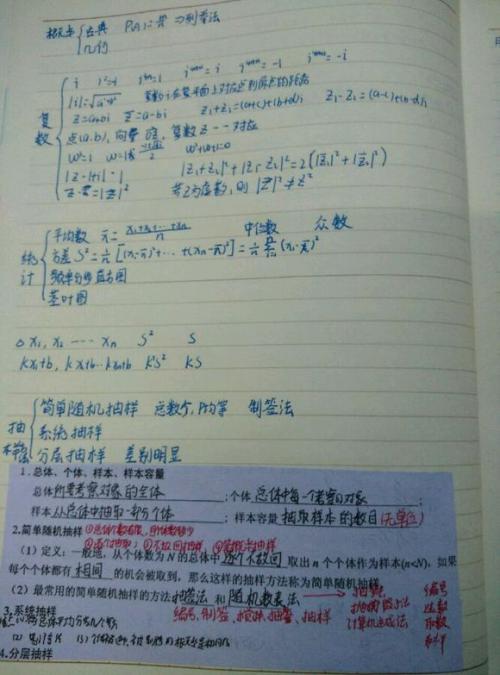 概率 古典 P(A)= 列举法
几何
复数
i i²=-1 i⁴ⁿ=1 i⁴ⁿ⁺¹=i i⁴ⁿ⁺²=-1 i⁴ⁿ⁺³=-i
z=a+bi z̄=a-bi z₁+z₂=(a+c)+(b+d)i z₁-z₂=(a-c)+(b-d)i
点(a,b), 向量 复数z 一一对应
w³=1 w²+w+1=0
|z₁+z₂|²+|z₁-z₂|²=2(|z₁|²+|z₂|²)
z·z̄=|z|² 若z为虚数,则 |z|²≠z²
统计
平均数 x̄=(x₁+x₂+…+xₙ)/n 中位数 众数
方差 S²=1/n[(x₁-x̄)²+…+(xₙ-x̄)²]=1/n Σ(xᵢ-x̄)²
频率分布直方图
茎叶图
△ x₁, x₂ ---- xₙ S² S
kx₁+b, kx₂+b…kxₙ+b k²S² kS
抽样
简单随机抽样 总数少,均等 制签法
系统抽样
分层抽样 差别明显
1.总体、个体、样本、样本容量
总体所要考察对象的全体;个体总体中每一个考察对象;
样本从总体中抽取一部分个体;样本容量是抽取样本的数目(无单位)
2.简单随机抽样 ①总体个数有限,
②逐个抽取; ③不放回抽样; ④等概率抽样
(1)定义:一般地,从个体数为N的总体中逐个不放回取出n个个体作为样本(n<N),如果
每个个体都有相同的机会被取到,那么这样的抽样方法称为简单随机抽样
(2)最常用的简单随机抽样的方法抽签法和随机数表法
编号、制签、搅拌、抽签、抽样
计算机生成法
编号
取数
3.系统抽样
4.分层抽样